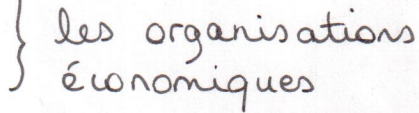 } les organisations
économiques